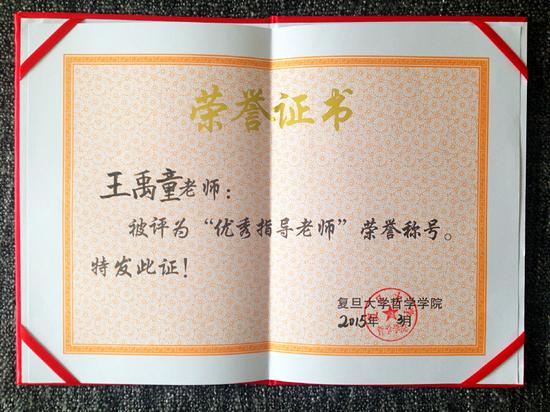 荣誉证书
王禹童老师：
被评为“优秀指导老师”荣誉称号。
特发此证！
复旦大学哲学学院
2015年3月
哲学学院